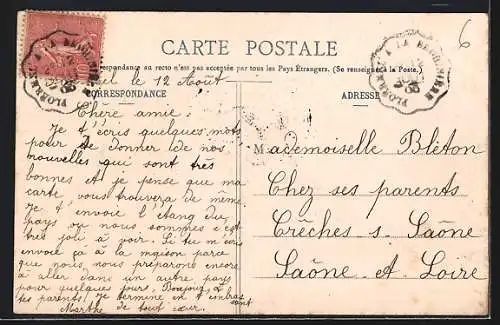 CARTE POSTALE
Correspondance au recto n'est pas acceptée par tous les Pays Étrangers. (Se renseigner à la Poste.)
le 12 Août
CORRESPONDANCE
ADRESSE
Chère amie :
Je t'écris quelques mots
pour de donner de nos
nouvelles qui sont très
bonnes et je pense que ma
carte vous trouvera de même
Je t envoie l'étang du
pays ou nous sommes c'est
très joli à voir. Si tu m'écris
envoie ça à la maison parce
que nous nous préparons encore
à aller dans un autre pays
pour quelques jours. Bonjour à
tes parents! Je termine en t'embrassant
Marthe de tout cœur.
Mademoiselle Bléton
Chez ses parents
Crêches s. Saône
Saône et Loire
6